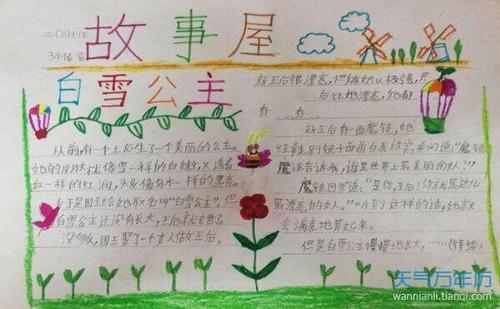 故事屋
白雪公主
从前,有一个王后生了一个美丽的公主。
她的皮肤就像雪一样的白嫩,又透着
血一样的红润,头发像乌木一样的黑亮。
于是国王给她取名叫"白雪公主",但
白雪公主还没有长大,王后就去世了
没多久,国王娶了一个女人做王后。
新王后很漂亮,但
后比她漂亮,她都
新王后有一面魔镜,她
经常到镜子面前自我欣赏,并问道:"
魔法告诉我,谁是世界上最美丽的女人?"
魔镜回答道:"是你,王后!你就是这儿
最漂亮的女人。"听到这样的话,她就
去满意地笑起来。
但是白雪公主慢慢地长大,……(待续)
天气万年历
wannianli.tianqi.com